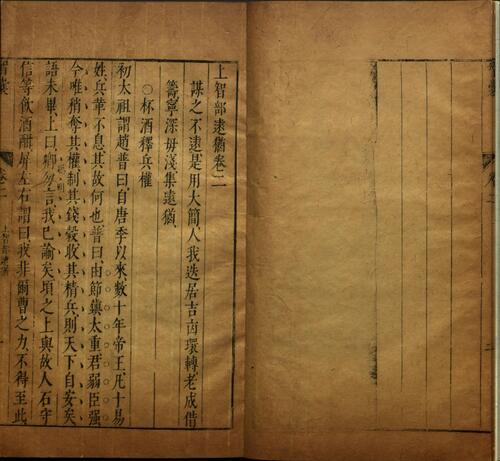 上智部遠猶卷二
謀之不遠是用大簡人我迭居吉凶環轉老成借
籌寧深毋淺集遠猶
○杯酒釋兵權
初太祖謂趙普曰自唐季以來數十年帝王凡十易
姓兵革不息其故何也普曰由節鎮太重君弱臣强
今唯稍奪其權制其錢穀收其精兵則天下自安矣
語未畢上曰卿勿言我已諭矣頃之上與故人石守
信等飲酒酣屏左右謂曰我非爾曹之力不得至此
智囊
卷二
上智部遠猶
一